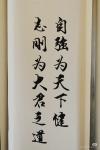 自強為天下健
志剛為大君之道